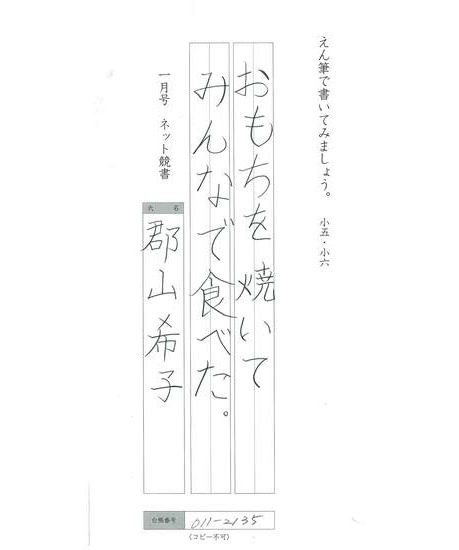 えん筆で書いてみましょう。 小五・小六
おもちを焼いて
みんなで食べた。
一月号 ネット競書
氏名
郡山希子
台帳番号 011-2135
(コピー不可)